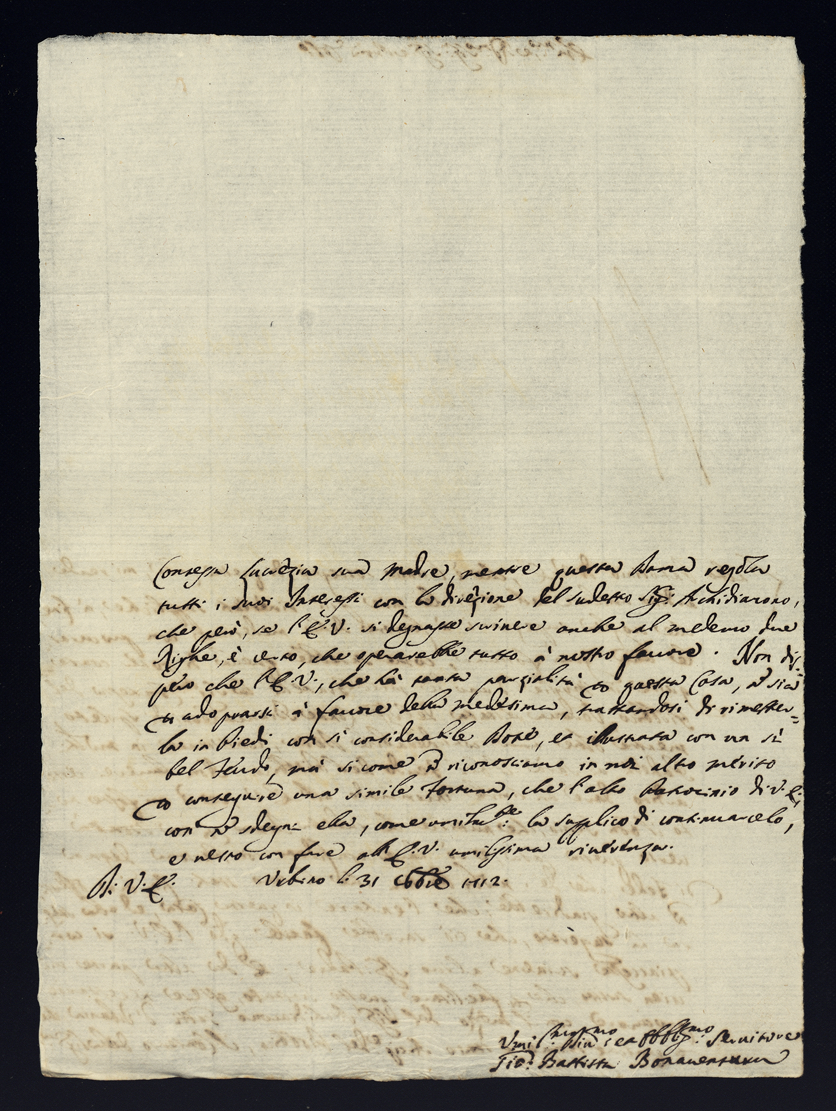 Contessa Lucrezia sua Madre, mentre questa Dama regola
tutti i suoi Interessi con la direzione del sudetto Sigr Archidiacono,
che però, se l'E. V. si degnasse scrivere anche al medemo due
Righe, è certo, che operarebbe tutto à nostro favore. Non di
però che l'E. V., che hà tanta parzialità questa Casa, sia
adoprarsi à favore della medesima, trattandosi di rimetter=
la in Piedi con sì considerabile Dote, et illustrata con un sì
bel Feudo, mà si come riconosciamo in noi altro merito
conseguire una simile fortuna, che l'alto Patrocinio di V. E.,
così sdegni ella, come la supplico di continuarcelo,
e resto con fare all'E. V. umilissima riverenza.
Di V. E. Urbino li 31 1712.
Umil.mo Div.mo et Obblig.mo Servitore
Gio: Battista Bonaventura